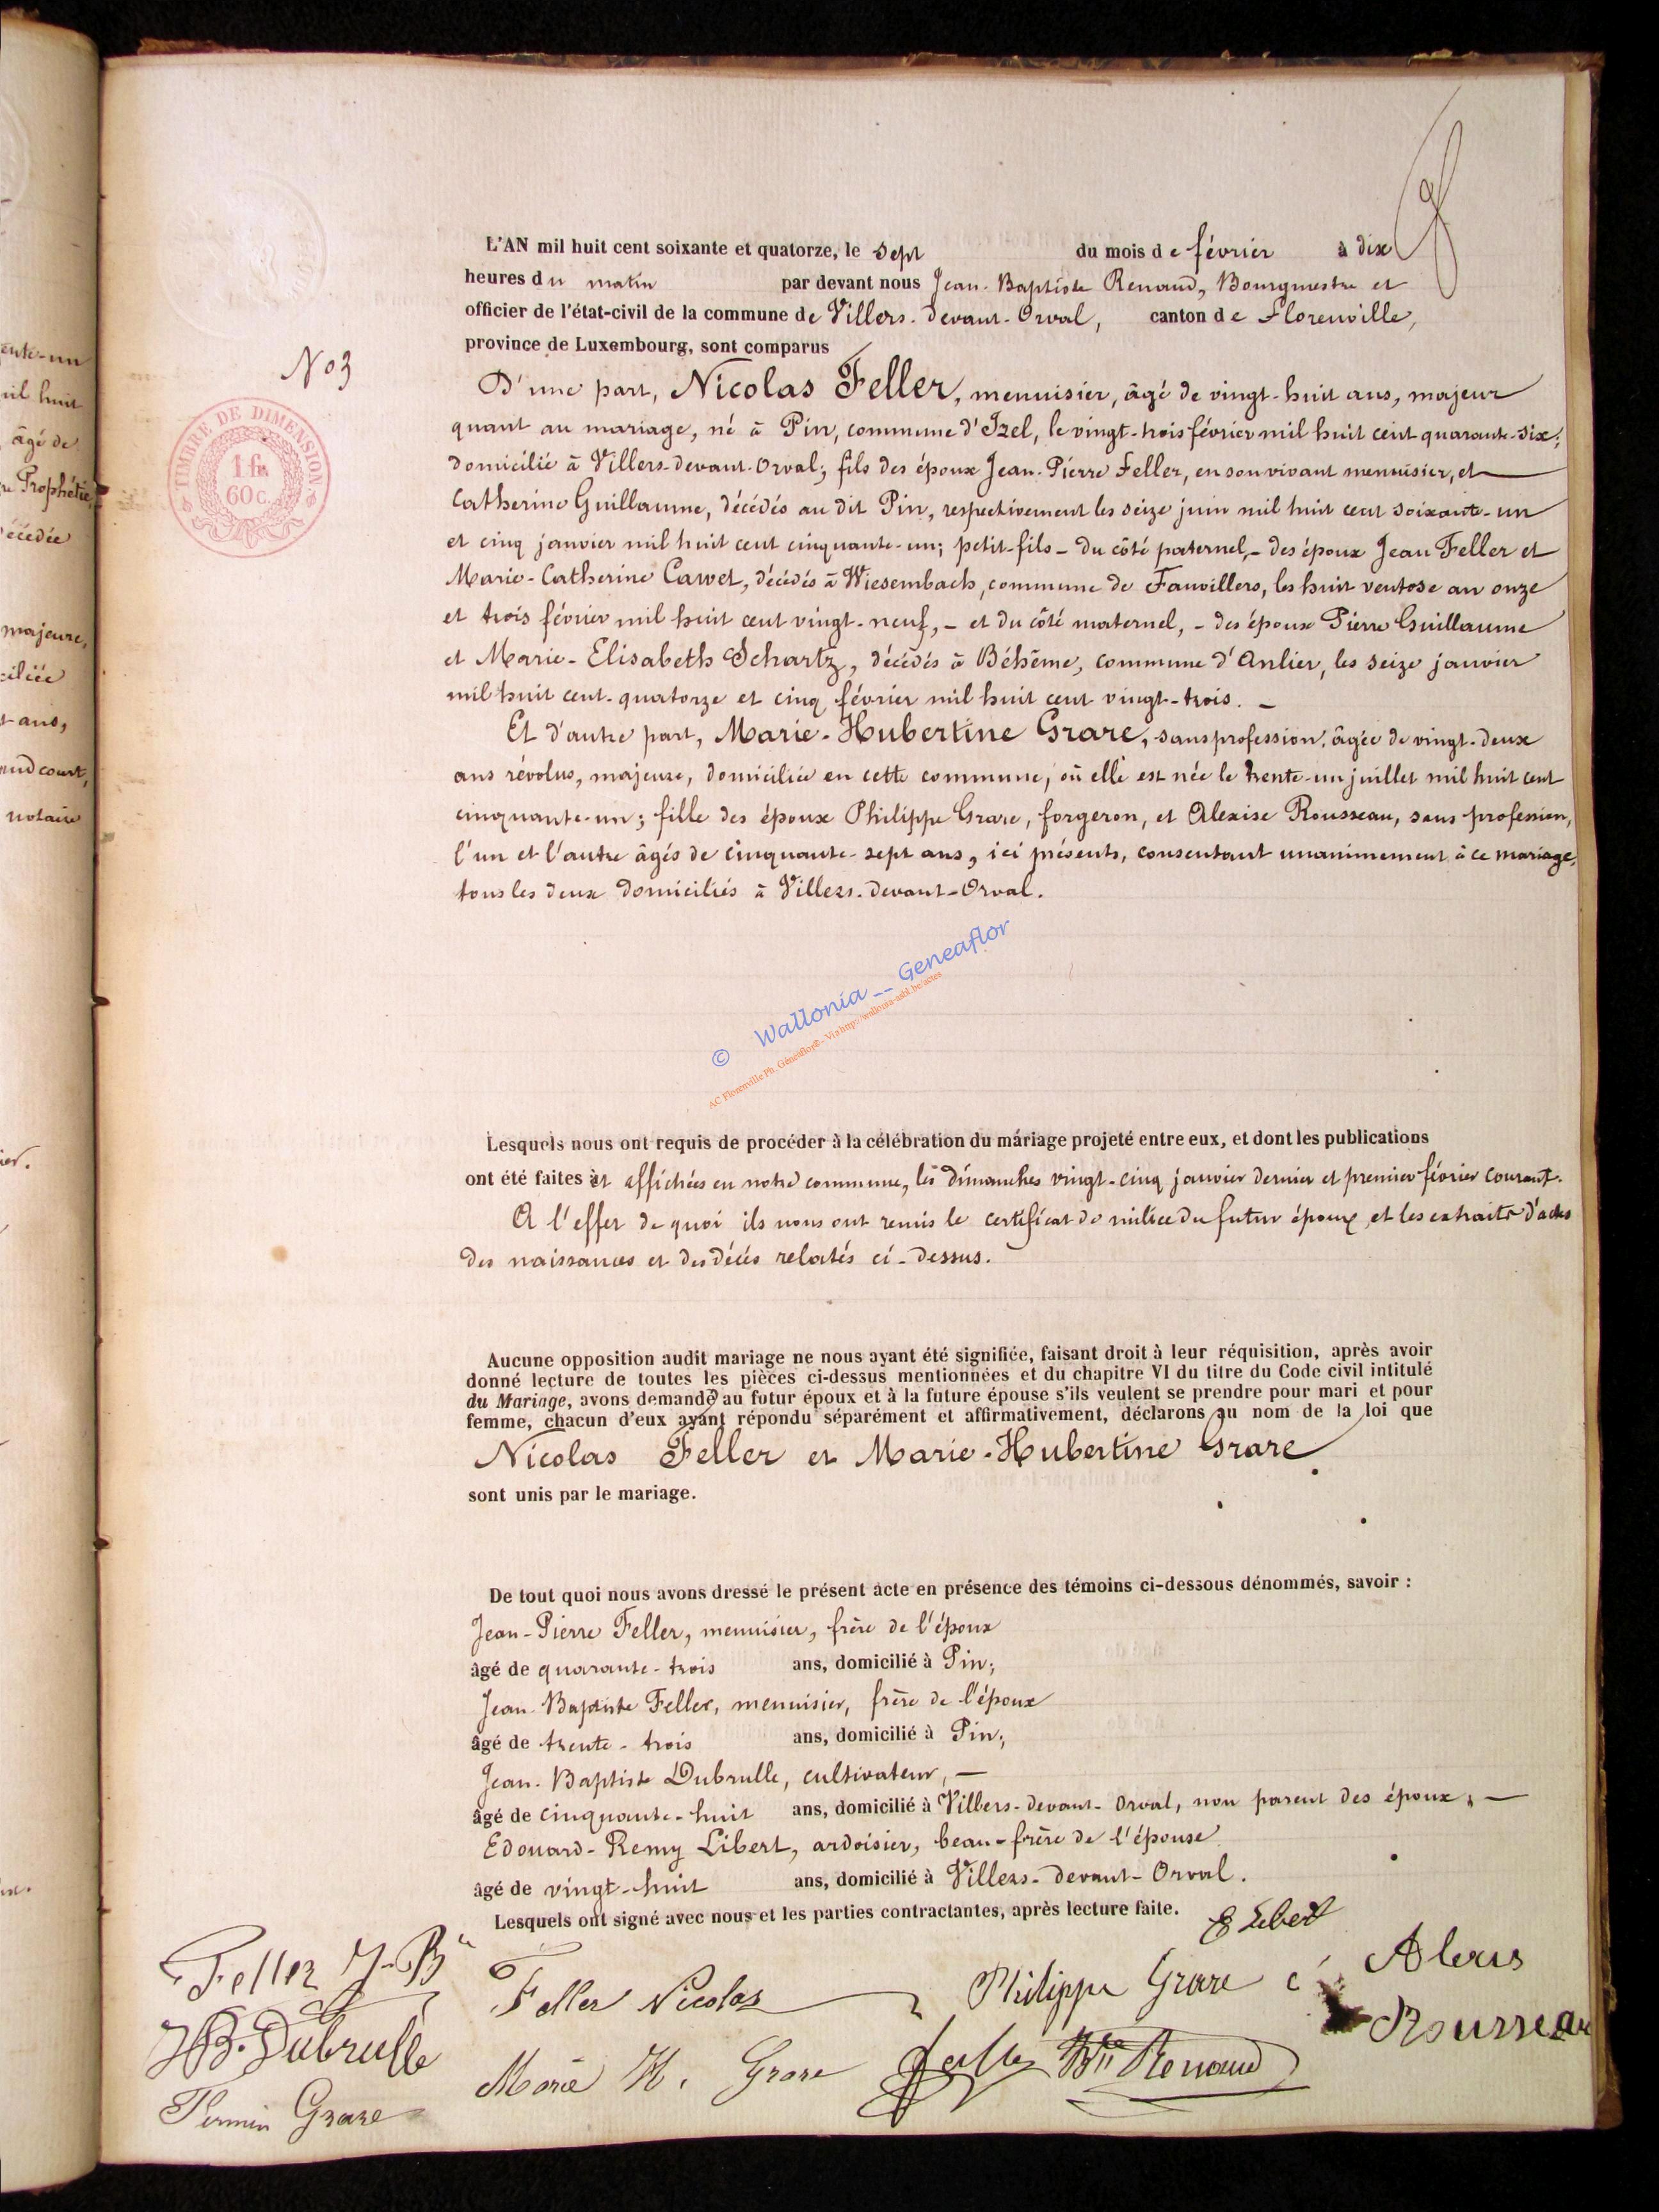 L'AN mil huit cent soixante et quatorze, le sept du mois de février à dix
heures du matin par devant nous Jean-Baptiste Renaud, Bourgmestre et
officier de l'état-civil de la commune de Villers-devant-Orval, canton de Florenville,
province de Luxembourg, sont comparus
No 3
TIMBRE DE DIMENSION
1 fr.
60 c.
D'une part, Nicolas Feller, menuisier, âgé de vingt-huit ans, majeur
quant au mariage, né à Pin, commune d'Izel, le vingt-trois février mil huit cent quarante-six;
domicilié à Villers-devant-Orval; fils des époux Jean-Pierre Feller, en son vivant menuisier, et
Catherine Guillaume, décédés au dit Pin, respectivement les seize juin mil huit cent soixante-un
et cinq janvier mil huit cent cinquante-un; petit-fils - du côté paternel, - des époux Jean Feller et
Marie-Catherine Cawet, décédés à Wiesembach, commune de Fauvillers, les huit ventose an onze
et trois février mil huit cent vingt-neuf, - et du côté maternel, - des époux Pierre Guillaume
et Marie-Elisabeth Schartz, décédés à Béhême, commune d'Anlier, les seize janvier
mil huit cent-quatorze et cinq février mil huit cent vingt-trois. -
Et d'autre part, Marie-Hubertine Grare, sans profession, âgée de vingt-deux
ans révolus, majeure, domiciliée en cette commune, où elle est née le trente-un juillet mil huit cent
cinquante-un; fille des époux Philippe Grare, forgeron, et Alexise Rousseau, sans profession,
l'un et l'autre âgés de cinquante-sept ans, ici présents, consentant unanimement à ce mariage,
tous les deux domiciliés à Villers-devant-Orval.
© Wallonia __ Geneaflor
AC Florenville Ph. Généaflor® - Via http://wallonia-asbl.be/actes
Lesquels nous ont requis de procéder à la célébration du mariage projeté entre eux, et dont les publications
ont été faites et affichées en notre commune, les dimanches vingt-cinq janvier dernier et premier février courant.
A l'effet de quoi ils nous ont remis le certificat de milice du futur époux et les extraits d'actes
des naissances et des décès relatés ci-dessus.
Aucune opposition audit mariage ne nous ayant été signifiée, faisant droit à leur réquisition, après avoir
donné lecture de toutes les pièces ci-dessus mentionnées et du chapitre VI du titre du Code civil intitulé
du Mariage, avons demandé au futur époux et à la future épouse s'ils veulent se prendre pour mari et pour
femme, chacun d'eux ayant répondu séparément et affirmativement, déclarons au nom de la loi que
Nicolas Feller et Marie-Hubertine Grare
sont unis par le mariage.
De tout quoi nous avons dressé le présent acte en présence des témoins ci-dessous dénommés, savoir :
Jean-Pierre Feller, menuisier, frère de l'époux
âgé de quarante-trois ans, domicilié à Pin;
Jean-Baptiste Feller, menuisier, frère de l'époux
âgé de trente-trois ans, domicilié à Pin;
Jean-Baptiste Dubrulle, cultivateur, -
âgé de cinquante-huit ans, domicilié à Villers-devant-Orval, non parent des époux, -
Edouard-Remy Libert, ardoisier, beau-frère de l'épouse
âgé de vingt-huit ans, domicilié à Villers-devant-Orval.
Lesquels ont signé avec nous et les parties contractantes, après lecture faite.
E Libert
Feller J-B
Feller Nicolas
Philippe Grare
Alexis
Rousseau
JB. Dubrulle
Marie H. Grare
Bte Renaud
Firmin Grare
ente-un
mil huit
âgé de
Prophétie,
décédée
majeure,
ciliée
t-ans,
court,
notaire